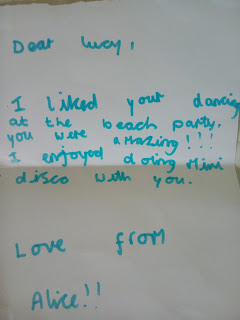 Dear Lucy,
I liked your dancing
at the beach party.
you were amazing!!!
I enjoyed doing Mini
disco with you.
Love from
Alice!!